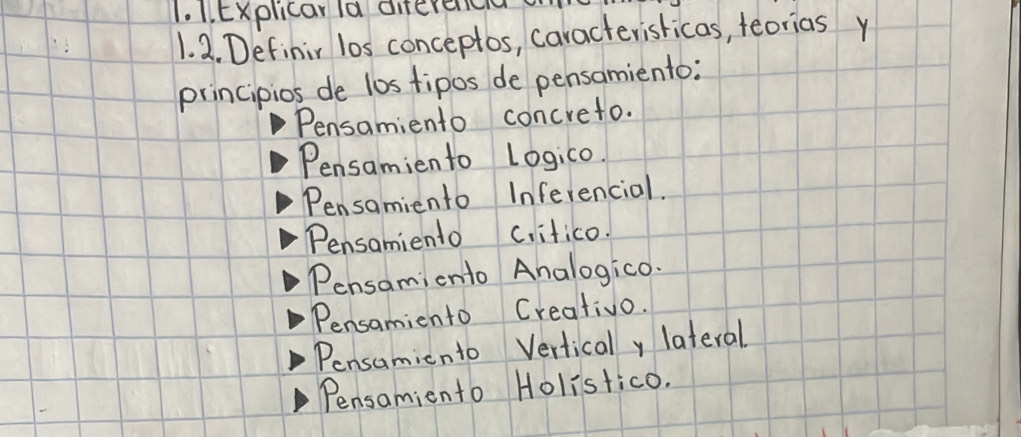 1.1. Explicar la diferencia
1.2. Definir los conceptos, caracteristicas, teorias y
principios de los tipos de pensamiento:
▶ Pensamiento concreto.
▶ Pensamiento Logico.
▶ Pensamiento Inferencial.
▶ Pensamiento critico.
▶ Pensamiento Analogico.
▶ Pensamiento Creativo.
▶ Pensamiento Vertical y lateral.
▶ Pensamiento Holistico.